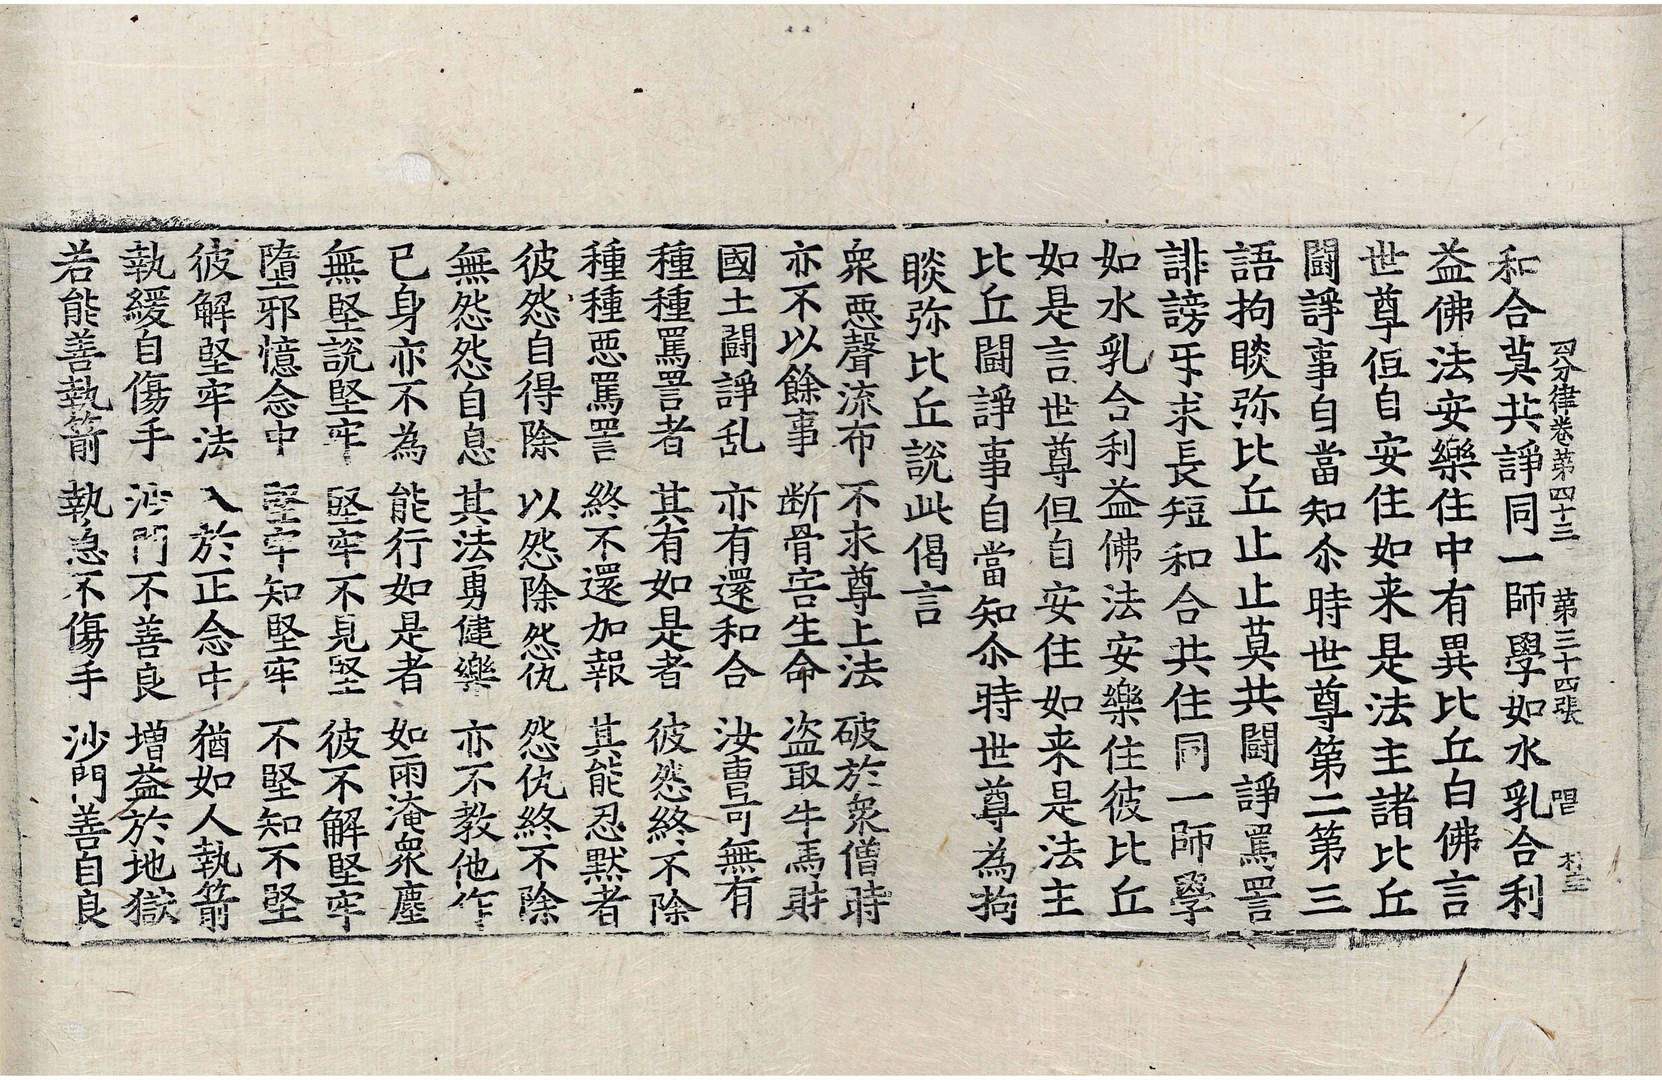 四分律卷第四十三 第三十四張 唱
和合莫共諍同一師學如水乳合利
益佛法安樂住中有異比丘白佛言
世尊但自安住如来是法主諸比丘
闘諍事自當知尒時世尊第二第三
語拘睒弥比丘止止莫共闘諍罵詈
誹謗乐求長短和合共住同一師學
如水乳合利益佛法安樂住彼比丘
如是言世尊但自安住如来是法主
比丘闘諍事自當知尒時世尊為拘
睒弥比丘說此偈言
衆惡聲流布 不求尊上法 破於衆僧時
亦不以餘事 断骨害生命 盗取牛馬財
國土闘諍乱 亦有還和合 汝曺可無有
種種罵詈者 其有如是者 彼怨終不除
種種惡罵詈 終不還加報 其能忍黙者
彼怨自得除 以怨除怨仇 怨仇終不除
無怨怨自息 其法勇健樂 亦不教他作
已身亦不為 能行如是者 如雨淹衆塵
無堅說堅牢 堅牢不見堅 彼不解堅牢
墮邪憶念中 堅牢知堅牢 不堅知不堅
彼解堅牢法 入於正念中 猶如人執箭
執緩自傷手 沙門不善良 增益於地獄
若能善執箭 執急不傷手 沙門善自良